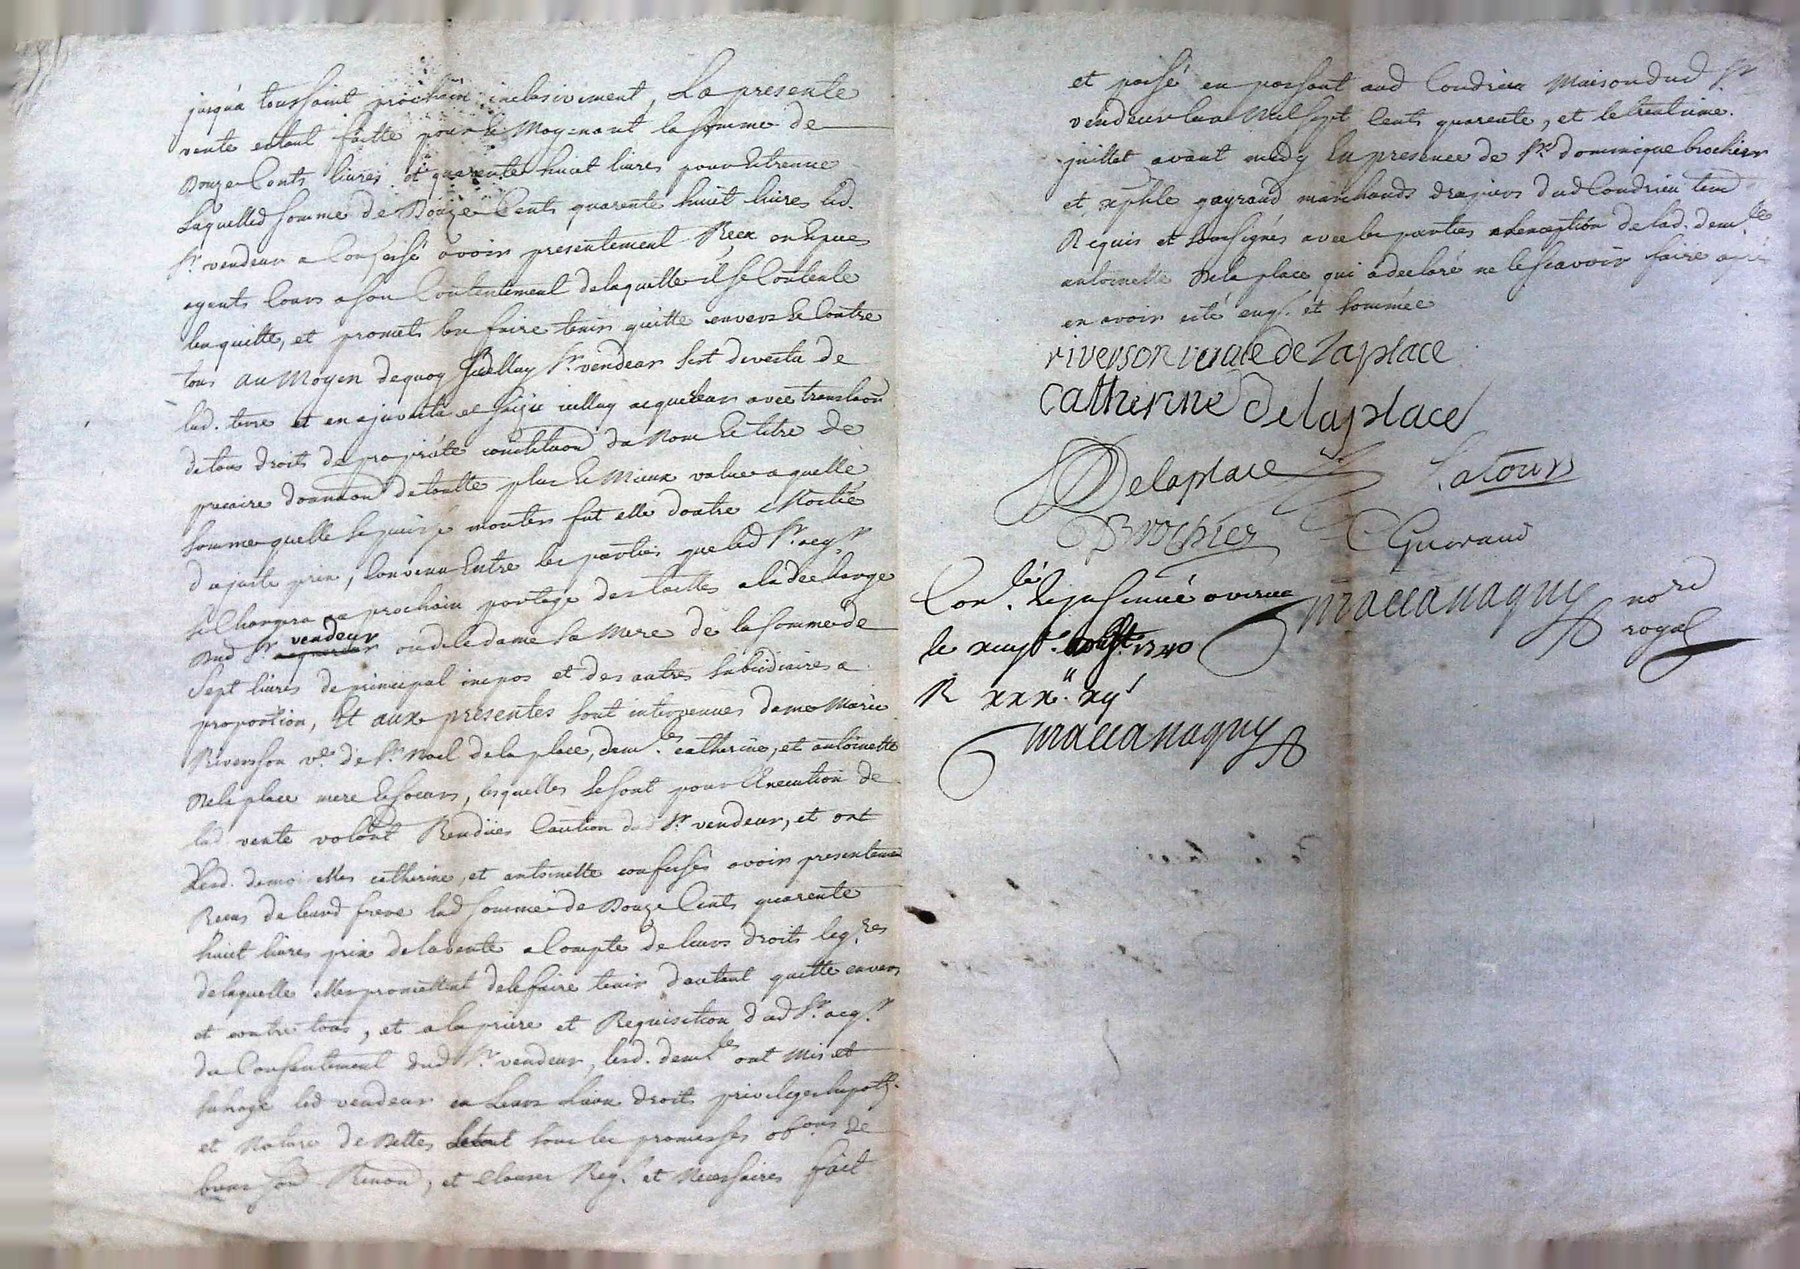 jusqu'a toussaint prochain inclusivement, La presente
vente estant faitte pour le Moyenant la somme de
Douze Cents livres et quarente huit livres pour Estrenne
Laquelled somme de Douze Cents quarente huit livres led.
Sr. vendeur a Confessé avoir presentement Reçu en Espuces
agents Cours a son Contentement de laquelle il se Contente
len quitte, et promet len faire tenir quitte envers Et Contre
tous au Moyen dequoy Sr. vendeur sest devestu de
lad. terre et en a saisie acquereur avec
de tous droits de propriété du Nom Et titre de
precaire de toutte plus Et Mieux value a quelle
somme quelle se puisse monter fut elle doutre Moctié
du juste prix, Convenu Entre les parties que led Sr. acqr.
se Chargera au prochain portage des tailles a la decharge
Dud Sr. vendeur ou de la dame sa Mere de la somme de
sept livres de principal impos et des autres subsidiaires a
proportion, Et aux presentes sont intervenues dame Marie
Riverson ve. de Sr. Noel delaplace, demlles. catherine, et antoinette
Delaplace mere Et soeurs, lesquelles se sont pour L'Execution de
lad vente volont Rendües Caution dud Sr. vendeur, et ont
Lesd. demoiselles catherine, et antoinette confessés avoir presentemen
Receu de leurd frere lad somme de Douze Cents quarente
huit livres prix de la vente a Compte de leurs droits legres
de laquelle elles promettent de le faire tenir d'autant quitte envers
et contre tous, et a la priere et Requisition dud Sr. acqr.
du Consentement dud Sr. vendeur, lesd. demlles ont Mis et
subrogé led vendeur en Leurs Lieu droit privileges hipoth.
et Nature de Dettes Letout sous les promesses obons de
biens soud Renond, et clauses Req. et Necessaires fait
et passé en passant aud Condrieu Maison dud Sr
vendeur Lan Mil sept Cents quarente, et le trentieme.
juillet avant midy En presence de Sr. dominique brochier
et xphle gayraud marchands drapiers dud Condrieu tem
Requis et soussignés avec les parties a lexception de lad. demlle.
antoinette Delaplace qui a declaré ne le scavoir faire apré
en avoir esté enqs. et sommée
riverson veuve de laplace
catherine Delaplace
Delaplace Latour
Brochier Gueraud
Conlé. insinué
le aoust 1740
R xxx." xy s
maccanaguy nore
royal
maccanaguy